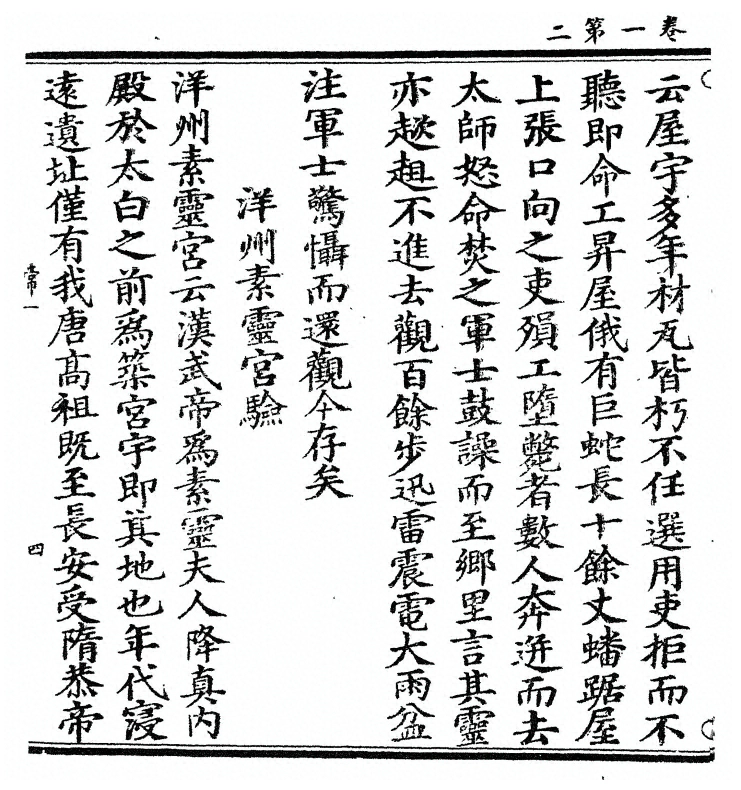 卷一第二
云屋宇多年材瓦皆朽不任選用吏拒而不
聽即命工昇屋俄有巨蛇長十餘丈蟠踞屋
上張口向之吏殞工墮斃者數人奔迸而去
太師怒命焚之軍士鼓譟而至鄉里言其靈
亦趑趄不進去觀百餘步迅雷震電大雨盆
注軍士驚懾而還觀今存矣
洋州素靈宮驗
洋州素靈宮云漢武帝為素靈夫人降真內
殿於太白之前為築宮宇即其地也年代寖
遠遺址僅有我唐高祖既至長安受隋恭帝
常一
四